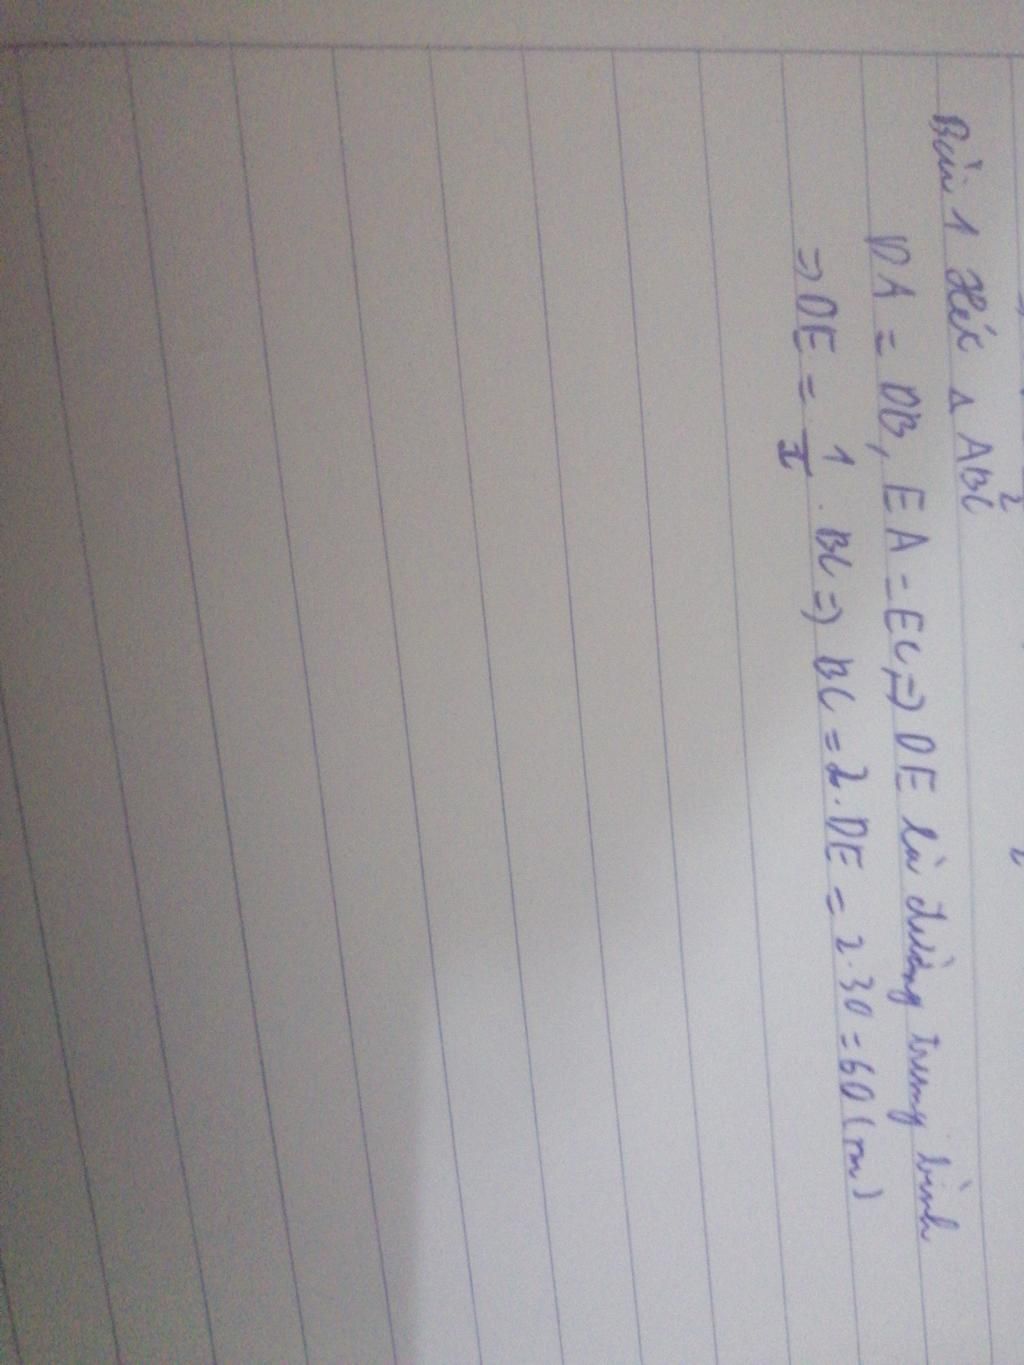 Bài 1 Xét △ ABC
DA = DB, EA = EC, => DE là đường trung bình
=> DE = 1/2 . BC => BC = 2. DE = 2.30 = 60 (m)